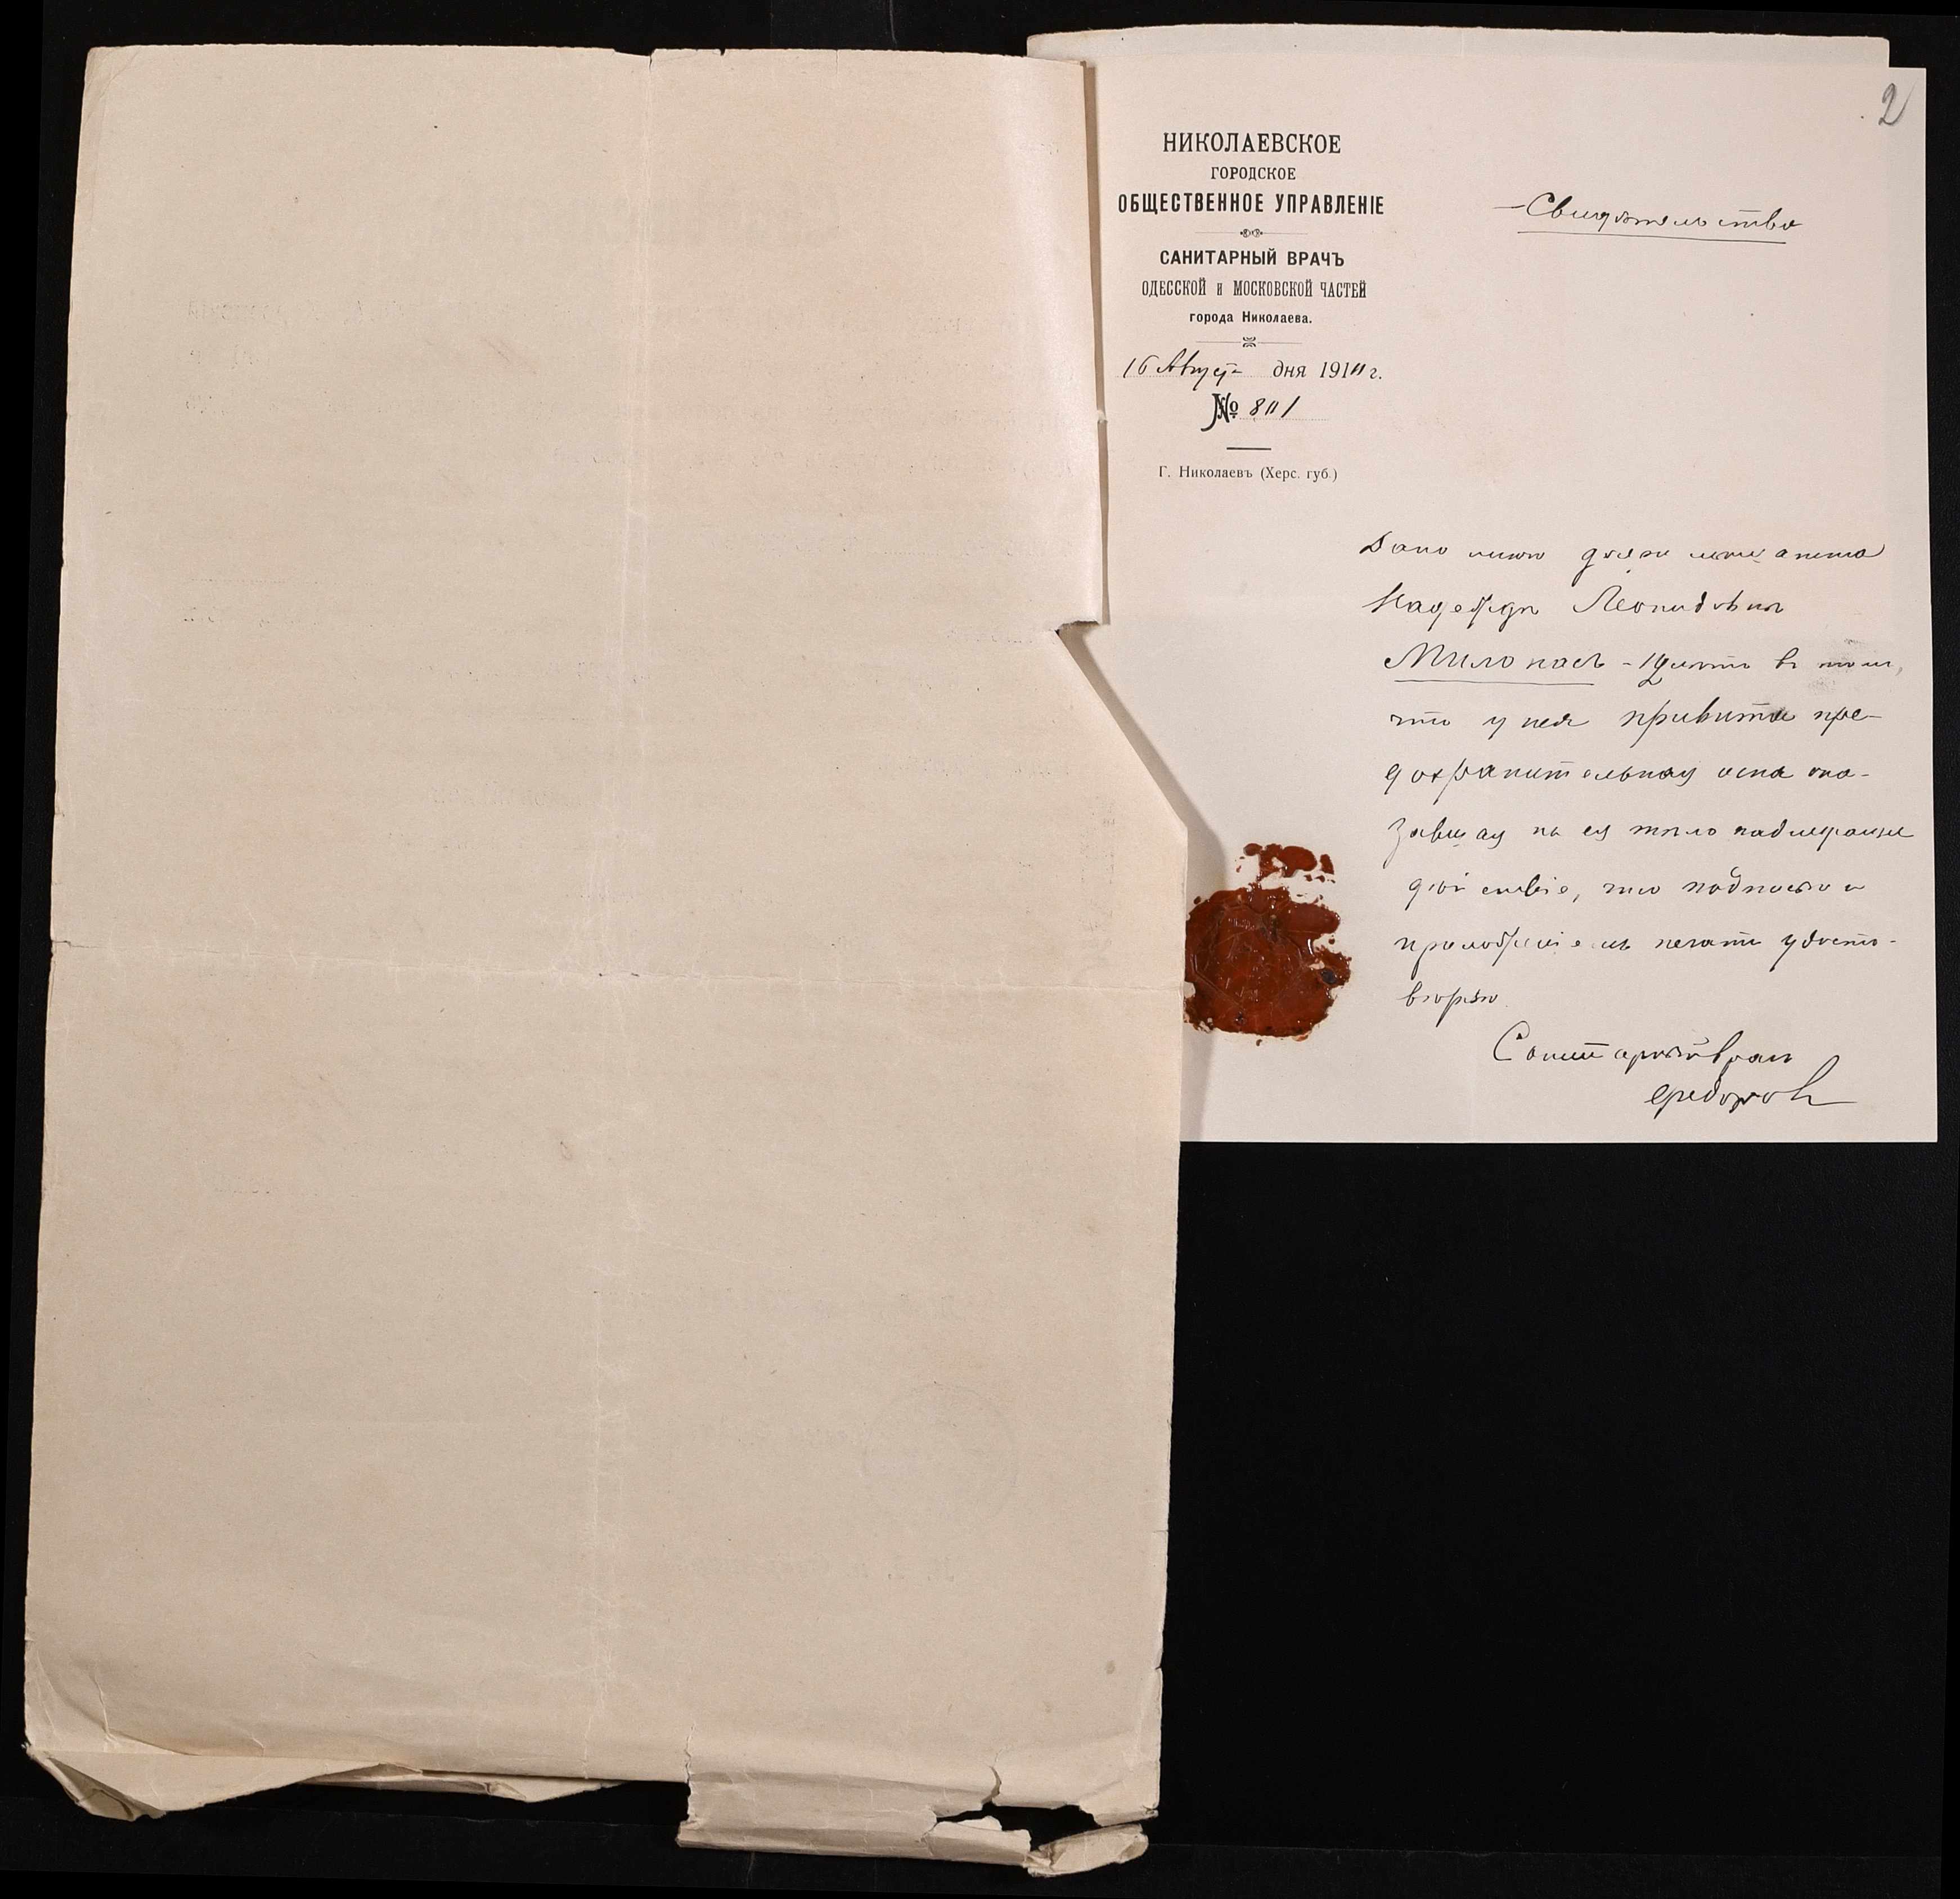 2
НИКОЛАЕВСКОЕ
ГОРОДСКОЕ
ОБЩЕСТВЕННОЕ УПРАВЛЕНІЕ
САНИТАРНЫЙ ВРАЧЪ
ОДЕССКОЙ и МОСКОВСКОЙ ЧАСТЕЙ
города Николаева.
16 Августа дня 1911 г.
№ 811
Г. Николаевъ (Херс. губ.)
Свидѣтельство
Дано мною дочери
Надеждѣ Леонидовнѣ
Милонасъ въ томъ,
что у нея привита пре-
дохранительная оспа ока-
завшая на ея тѣло надлежащее
дѣйствіе, что подписью и
приложеніемъ печати удосто-
вѣряю
Санитарный врачъ
Федоровъ